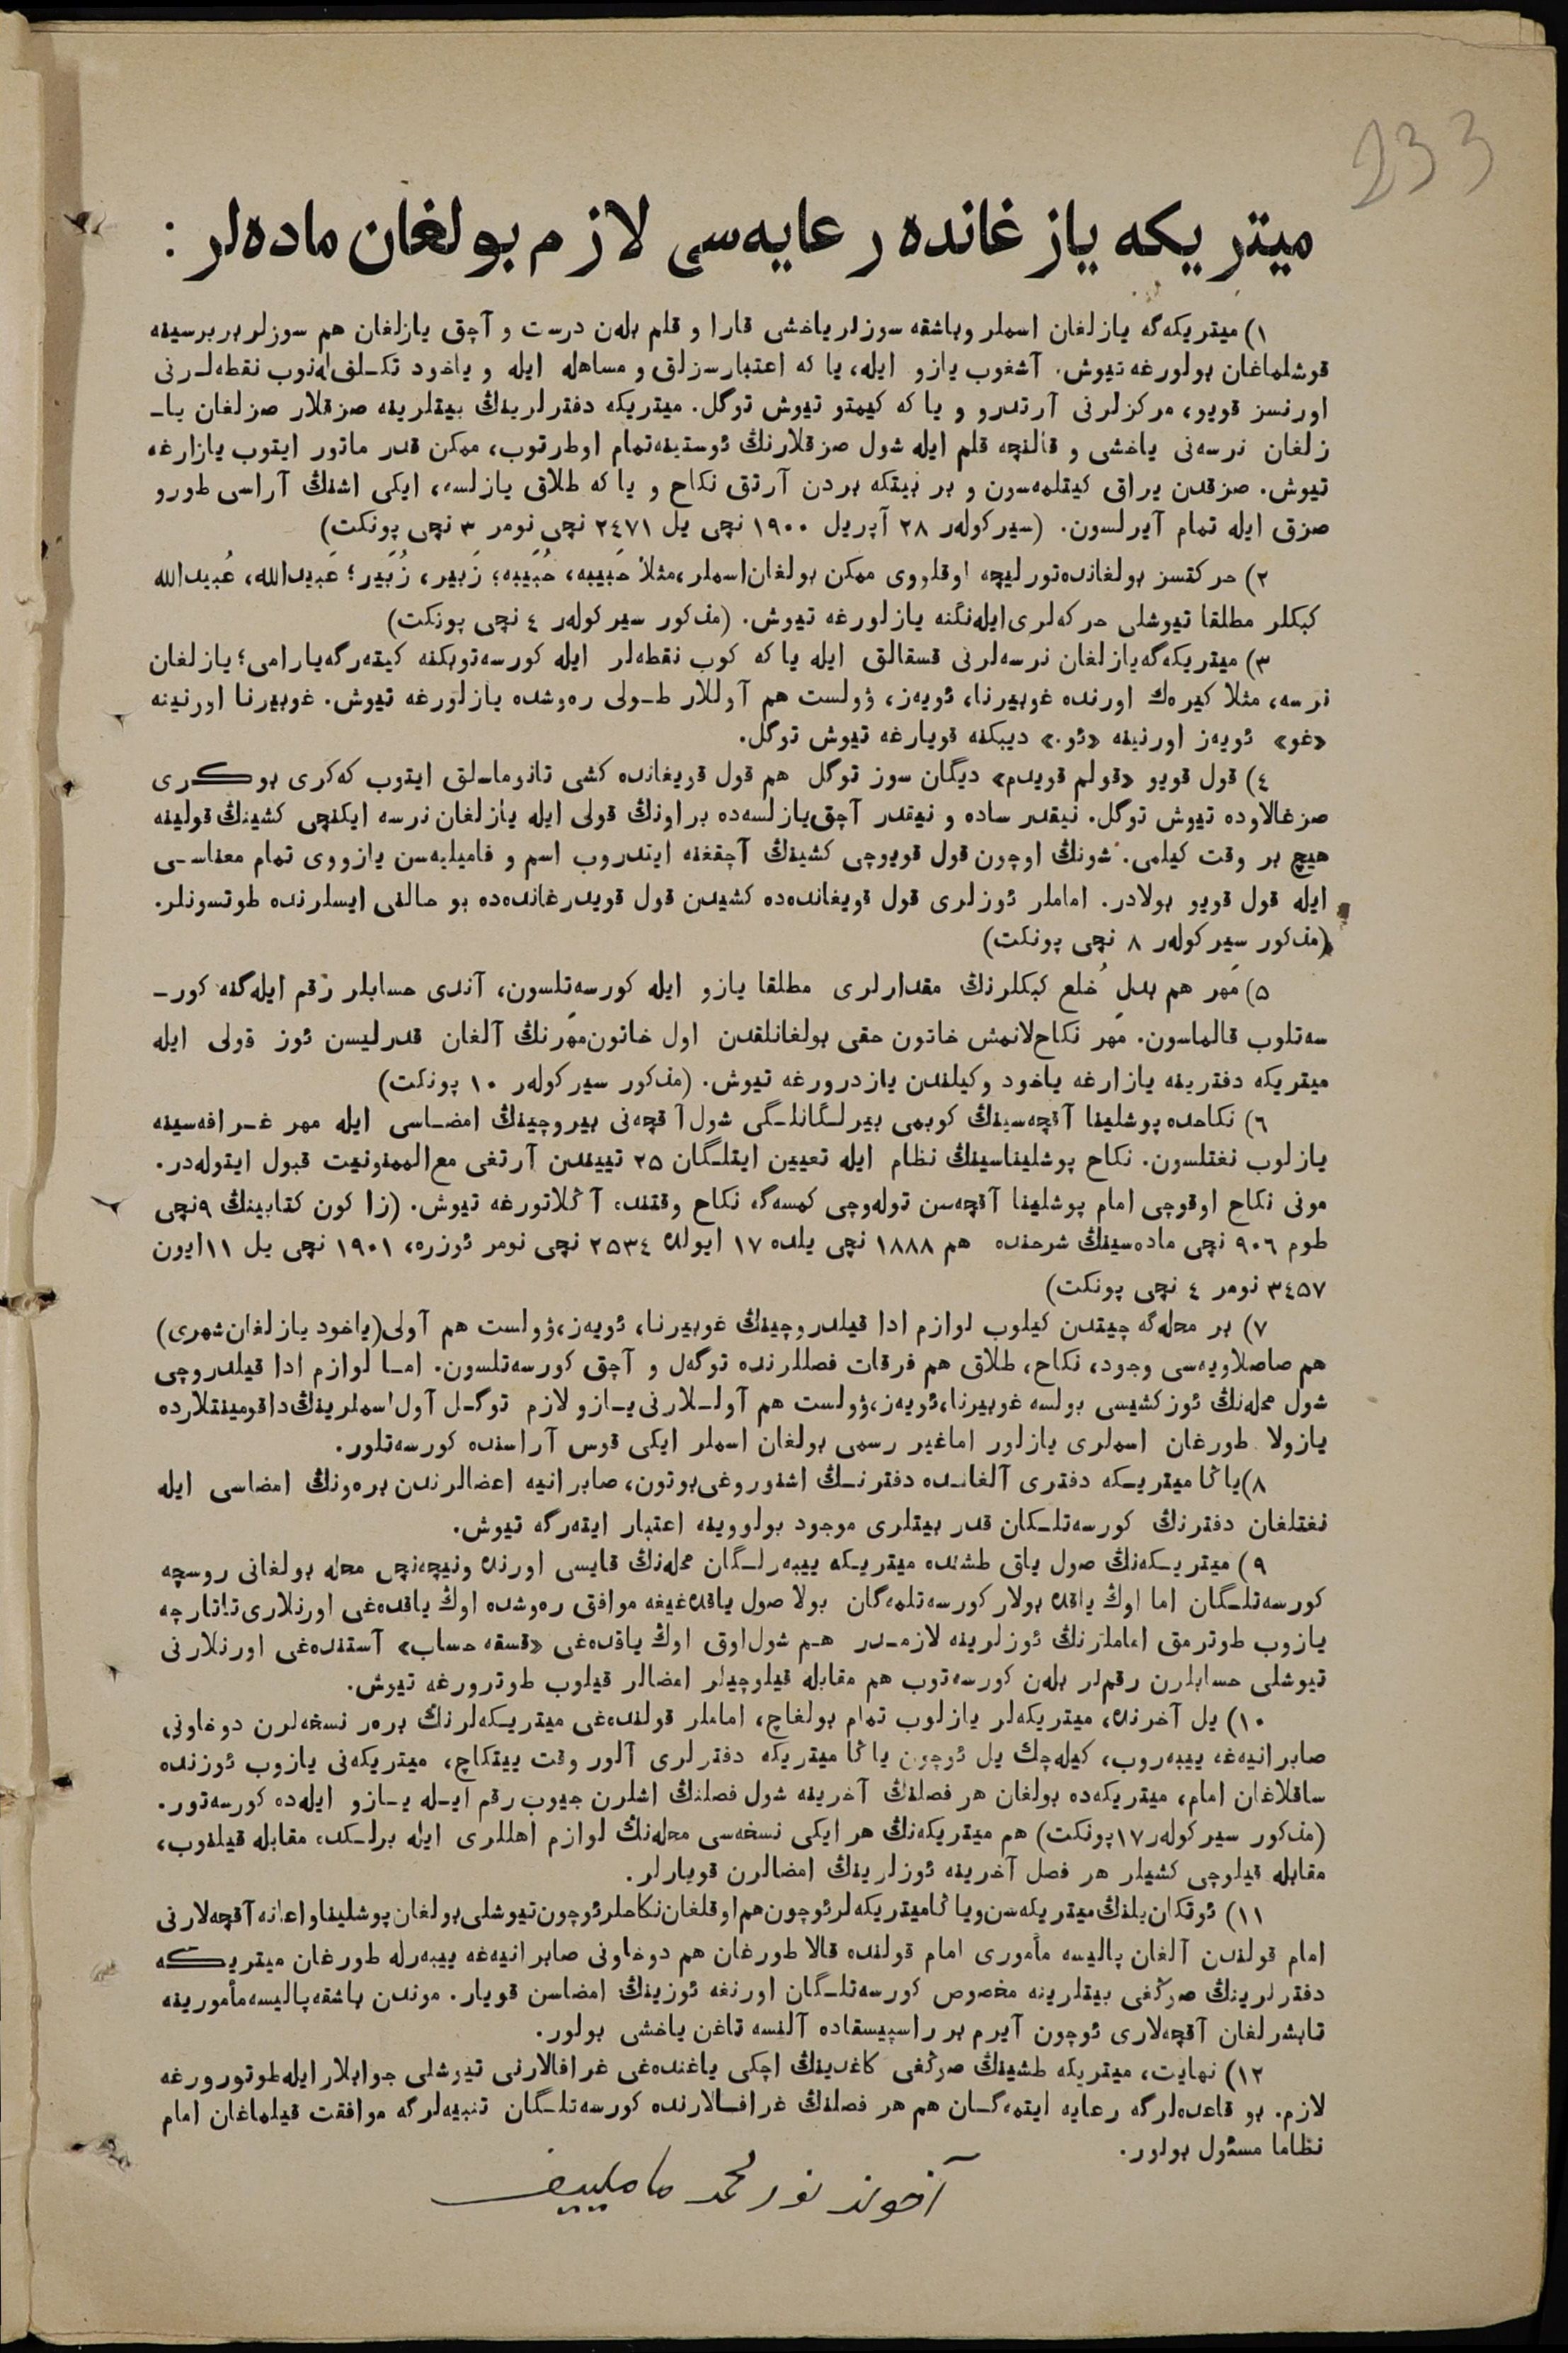 233
ميتريكه يازغانده رعايه‌سى لازم بولغان ماده‌لر :
١) ميتريكه‌گه يازلغان اسملر وباشقه سوزلر ياخشى قارا و قلم بله‌ن درست و آچق يازلغان هم سوزلر بربرسينه
قوشلماغان بولورغه تيوش. آشغوب يازو ايله، يا كه اعتبارسزلق و مساهله ايله و ياخود تكلفله‌نوب نقطه‌لرنى
اورنسز قويو، مركزلرنى آرتدرو و يا كه كيمتو تيوش توگل. ميتريكه دفترلرينڭ بيتلرينه صزقلار صزلغان يا-
زلغان نرسه‌نى ياخشى و قالنچه قلم ايله شول صزقلارنڭ ئوستينه تمام اوطرتوب، ممكن قدر ماتور ايتوب يازارغه
تيوش. صزقدن يراق كيتلمه‌سون و بر بيتكه بردن آرتق نكاح و يا كه طلاق يازلسه، ايكى اشنڭ آراسى طورو
صزق ايله تمام آيرلسون. (سيركوله‌ر ٢٨ آپريل ١٩٠٠ نچى يل ٢٤٧١ نچى نومر ٣ نچى پونكت)
٢) حركتسز بولغانده تورليچه اوقلووى ممكن بولغان اسملر، مثلا حَبيبه، حُبَيبه؛ زَبير، زُبَير؛ عَبيدالله، عُبيدالله
كبكلر مطلقا تيوشلى حركه‌لرى ايله‌نگنه يازلورغه تيوش. (مذكور سيركوله‌ر ٤ نچى پونكت)
٣) ميتريكه‌گه يازلغان نرسه‌لرنى قسقالق ايله يا كه كوب نقطه‌لر ايله كورسه‌توبكنه كيته‌رگه يارامى؛ يازلغان
نرسه، مثلا كيره‌ك اورنده غوبيرنا، ئويه‌ز، ۋولست هم آوللار طولى ره‌وشده يازلورغه تيوش. غوبيرنا اورنينه
«غو» ئويه‌ز اورنينه «ئو.» ديبكنه قويارغه تيوش توگل.
٤) قول قويو «قولم قويدم» ديگان سوز توگل هم قول قويغانده كشى تانوماسلق ايتوب كه‌كرى بوكرى
صزغالاوده تيوش توگل. نيقدر ساده و نيقدر آچق يازلسه‌ده براونڭ قولى ايله يازلغان نرسه ايكنچى كشينڭ قولينه
هيچ بر وقت كيلمى. شونڭ اوچون قول قويوچى كشينڭ آچقغنه ايتدروب اسم و فاميليه‌سن يازووى تمام معناسى
ايله قول قويو بولادر. اماملر ئوزلرى قول قويغانده‌ده كشيدن قول قويدرغانده‌ده بو حالنى ايسلرنده طوتسونلر.
(مذكور سيركوله‌ر ٨ نچى پونكت)
٥) مَهر هم بدلِ خُلع كبكلرنڭ مقدارلرى مطلقا يازو ايله كورسه‌تلسون، آندى حسابلر رقم ايله‌گنه كور-
سه‌تلوب قالماسون. مهر نكاح‌لانمش خاتون حقى بولغانلقدن اول خاتون مَهرنڭ آلغان قدرليسن ئوز قولى ايله
ميتريكه دفترينه يازارغه ياخود وكيلندن يازدرورغه تيوش. (مذكور سيركوله‌ر ١٠ پونكت)
٦) نكاحده پوشلينا آقچه‌سينڭ كوبمى بيرلگانلگى شول آقچه‌نى بيروچينڭ امضاسى ايله مهر غرافه‌سينه
يازلوب نغتلسون. نكاح پوشليناسينڭ نظام ايله تعيين ايتلگان ٢٥ تييندن آرتغى مع الممنونيت قبول ايتوله‌در.
مونى نكاح اوقوچى امام پوشلينا آقچه‌سن توله‌وچى كمسه‌گه نكاح وقتنده آڭلاتورغه تيوش. (زاكون كتابينڭ ٩نچى
طوم ٩٠٦ نچى ماده‌سينڭ شرحنده هم ١٨٨٨ نچى يلده ١٧ ايولده ٢٥٣٤ نچى نومر ئوزره، ١٩٠١ نچى يل ١١ايون
٣٤٥٧ نومر ٤ نچى پونكت)
٧) بر محله‌گه چيتدن كيلوب لوازم ادا قيلدروچينڭ غوبيرنا، ئويه‌ز، ۋولست هم آولى (ياخود يازلغان شهرى)
هم صاصلاويه‌سى وجود، نكاح، طلاق هم فرقات فصللرنده توگه‌ل و آچق كورسه‌تلسون. اما لوازم ادا قيلدروچى
شول محله‌نڭ ئوز كشيسى بولسه غوبيرنا، ئويه‌ز، ۋولست هم آوللارنى يازو لازم توگل آول اسملرينڭ داقومينتلارده
يازولا طورغان اسملرى يازلور اماغير رسمى بولغان اسملر ايكى قوس آراسنده كورسه‌تلور.
٨) ياڭا ميتريكه دفترى آلغانده دفترنڭ اشنوروغى بوتون، صابرانيه اعضالرندن بره‌ونڭ امضاسى ايله
نغتلغان دفترنڭ كورسه‌تلگان قدر بيتلرى موجود بولووينه اعتبار ايته‌رگه تيوش.
٩) ميتريكه‌نڭ صول ياق طشنده ميتريكه يبيه‌رلگان محله‌نڭ قايسى اورنده ونيچه‌نچى محله بولغانى روسچه
كورسه‌تلگان اما اوڭ ياقده بولار كورسه‌تلمه‌گان بولا صول ياقده‌غيغه موافق ره‌وشده اوڭ ياقده‌غى اورنلارى تاتارچه
يازوب طوترمق اماملرنڭ ئوزلرينه لازمدر هم شول اوق اوڭ ياقده‌غى «قسقه حساب» آستنده‌غى اورنلارنى
تيوشلى حسابلرن رقملر بله‌ن كورسه‌توب هم مقابله قيلوچيلر امضالر قيلوب طوترورغه تيوش.
١٠) يل آخرنده، ميتريكه‌لر يازلوب تمام بولغاچ، اماملر قولنده‌غى ميتريكه‌لرنڭ بره‌ر نسخه‌لرن دوخاونى
صابرانيه‌غه يبيه‌روب، كيله‌چك يل ئوچون ياڭا ميتريكه دفترلرى آلور وقت ييتكاچ، ميتريكه‌نى يازوب ئوزنده
ساقلاغان امام، ميتريكه‌ده بولغان هر فصلنڭ آخرينه شول فصلنڭ اشلرن جيوب رقم ايله يازو ايله‌ده كورسه‌تور.
(مذكور سيركوله‌ر ١٧پونكت) هم ميتريكه‌نڭ هر ايكى نسخه‌سى محله‌نڭ لوازم اهللرى ايله برلكده مقابله قيلنوب،
مقابله قيلوچى كشيلر هر فصل آخرينه ئوزلرينڭ امضالرن قويارلر.
١١) ئوتكان يلنڭ ميتريكه‌سن وياڭا ميتريكه‌لر ئوچون هم اوقلغان نكاحلر ئوچون تيوشلى بولغان پوشلينا واعانه آقچه‌لارنى
امام قولندن آلغان پاليسه مأمورى امام قولنده قالا طورغان هم دوخاونى صابرانيه‌غه يبيه‌رله طورغان ميتريكه
دفترلرينڭ صوڭغى بيتلرينه مخصوص كورسه‌تلگان اورنغه ئوزينڭ امضاسن قويار. موندن باشقه پاليسه مأمورينه
تابشرلغان آقچه‌لارى ئوچون آيرم بر راسپيسقاده آلنسه تاغن ياخشى بولور.
١٢) نهايت، ميتريكه طشينڭ صوڭغى كاغدينڭ اچكى ياغنده‌غى غرافالارنى تيوشلى جوابلار ايله طوتورورغه
لازم. بو قاعده‌لرگه رعايه ايتمه‌گان هم هر فصلنڭ غرافالارنده كورسه‌تلگان تنبيه‌لرگه موافقت قيلماغان امام
نظاما مسئول بولور.
آخوند نور محمد مامليف